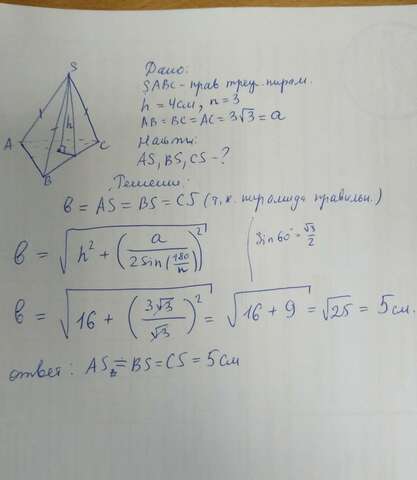 S
A
B
C
h
Дано:
SABC - прав треуг. пирам.
h = 4см, n = 3
AB = BC = AC = 3√3 = a
Найти:
AS, BS, CS - ?
Решение:
в = AS = BS = CS (т.к. пирамида правильн.)
в = √(h² + (a / 2sin(180/n))²)
sin60° = √3/2
в = √(16 + (3√3 / √3)²) = √(16 + 9) = √25 = 5см.
ответ: AS = BS = CS = 5см